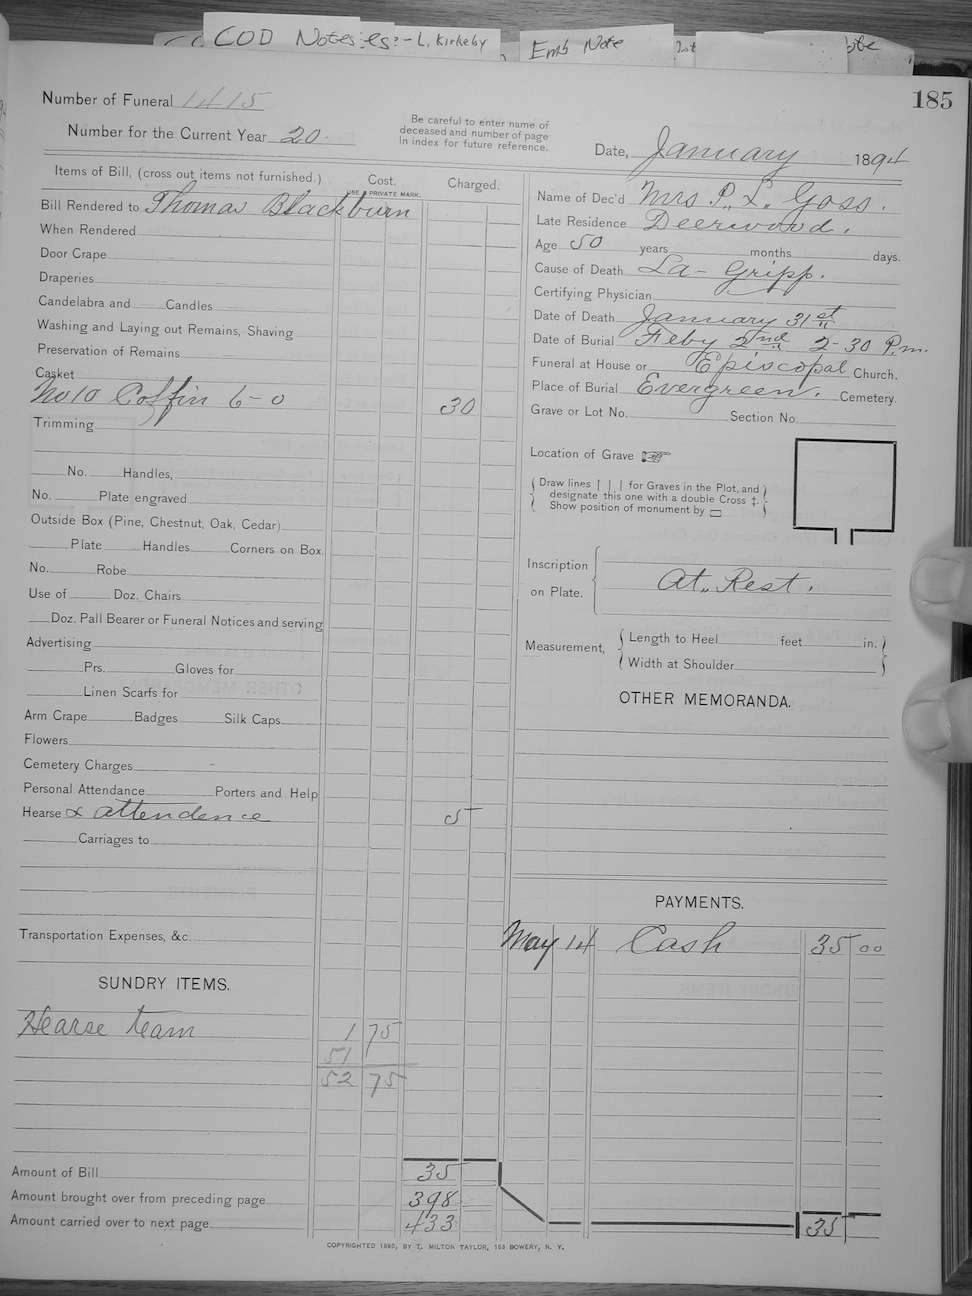 COD Notes es:- L. Kirkeby
Emb Note
Number of Funeral 1415
Number for the Current Year 20
Be careful to enter name of
deceased and number of page
in index for future reference.
185
Date, January 1894
Items of Bill, (cross out items not furnished.) Cost. Charged.
USE PRIVATE MARK.
Bill Rendered to Thomas Blackburn
When Rendered
Door Crape
Draperies
Candelabra and Candles
Washing and Laying out Remains, Shaving
Preservation of Remains
Casket
No 10 Coffin 6-0 30
Trimming
No. Handles,
No. Plate engraved
Outside Box (Pine, Chestnut, Oak, Cedar)
Plate Handles Corners on Box
No. Robe
Use of Doz. Chairs
Doz. Pall Bearer or Funeral Notices and serving
Advertising
Prs. Gloves for
Linen Scarfs for
Arm Crape Badges Silk Caps
Flowers
Cemetery Charges
Personal Attendance Porters and Help
Hearse & attendence 5
Carriages to
Transportation Expenses, &c.
SUNDRY ITEMS.
Hearse team 1 75
51
52 75
Amount of Bill 35
Amount brought over from preceding page 398
Amount carried over to next page 433
Name of Dec'd Mrs P. L. Goss.
Late Residence Deerwood.
Age 50 years months days.
Cause of Death La-Gripp.
Certifying Physician
Date of Death January 31st
Date of Burial Feby 2nd 2-30 P.m.
Funeral at House or Episcopal Church.
Place of Burial Evergreen. Cemetery.
Grave or Lot No. Section No.
Location of Grave
Draw lines | | | for Graves in the Plot, and
designate this one with a double Cross ‡.
Show position of monument by ▭
Inscription
on Plate.
At, Rest.
Measurement, Length to Heel feet in.
Width at Shoulder
OTHER MEMORANDA.
PAYMENTS.
May 14 Cash 35 00
35
COPYRIGHTED 1890, BY T. MILTON TAYLOR, 163 BOWERY, N. Y.